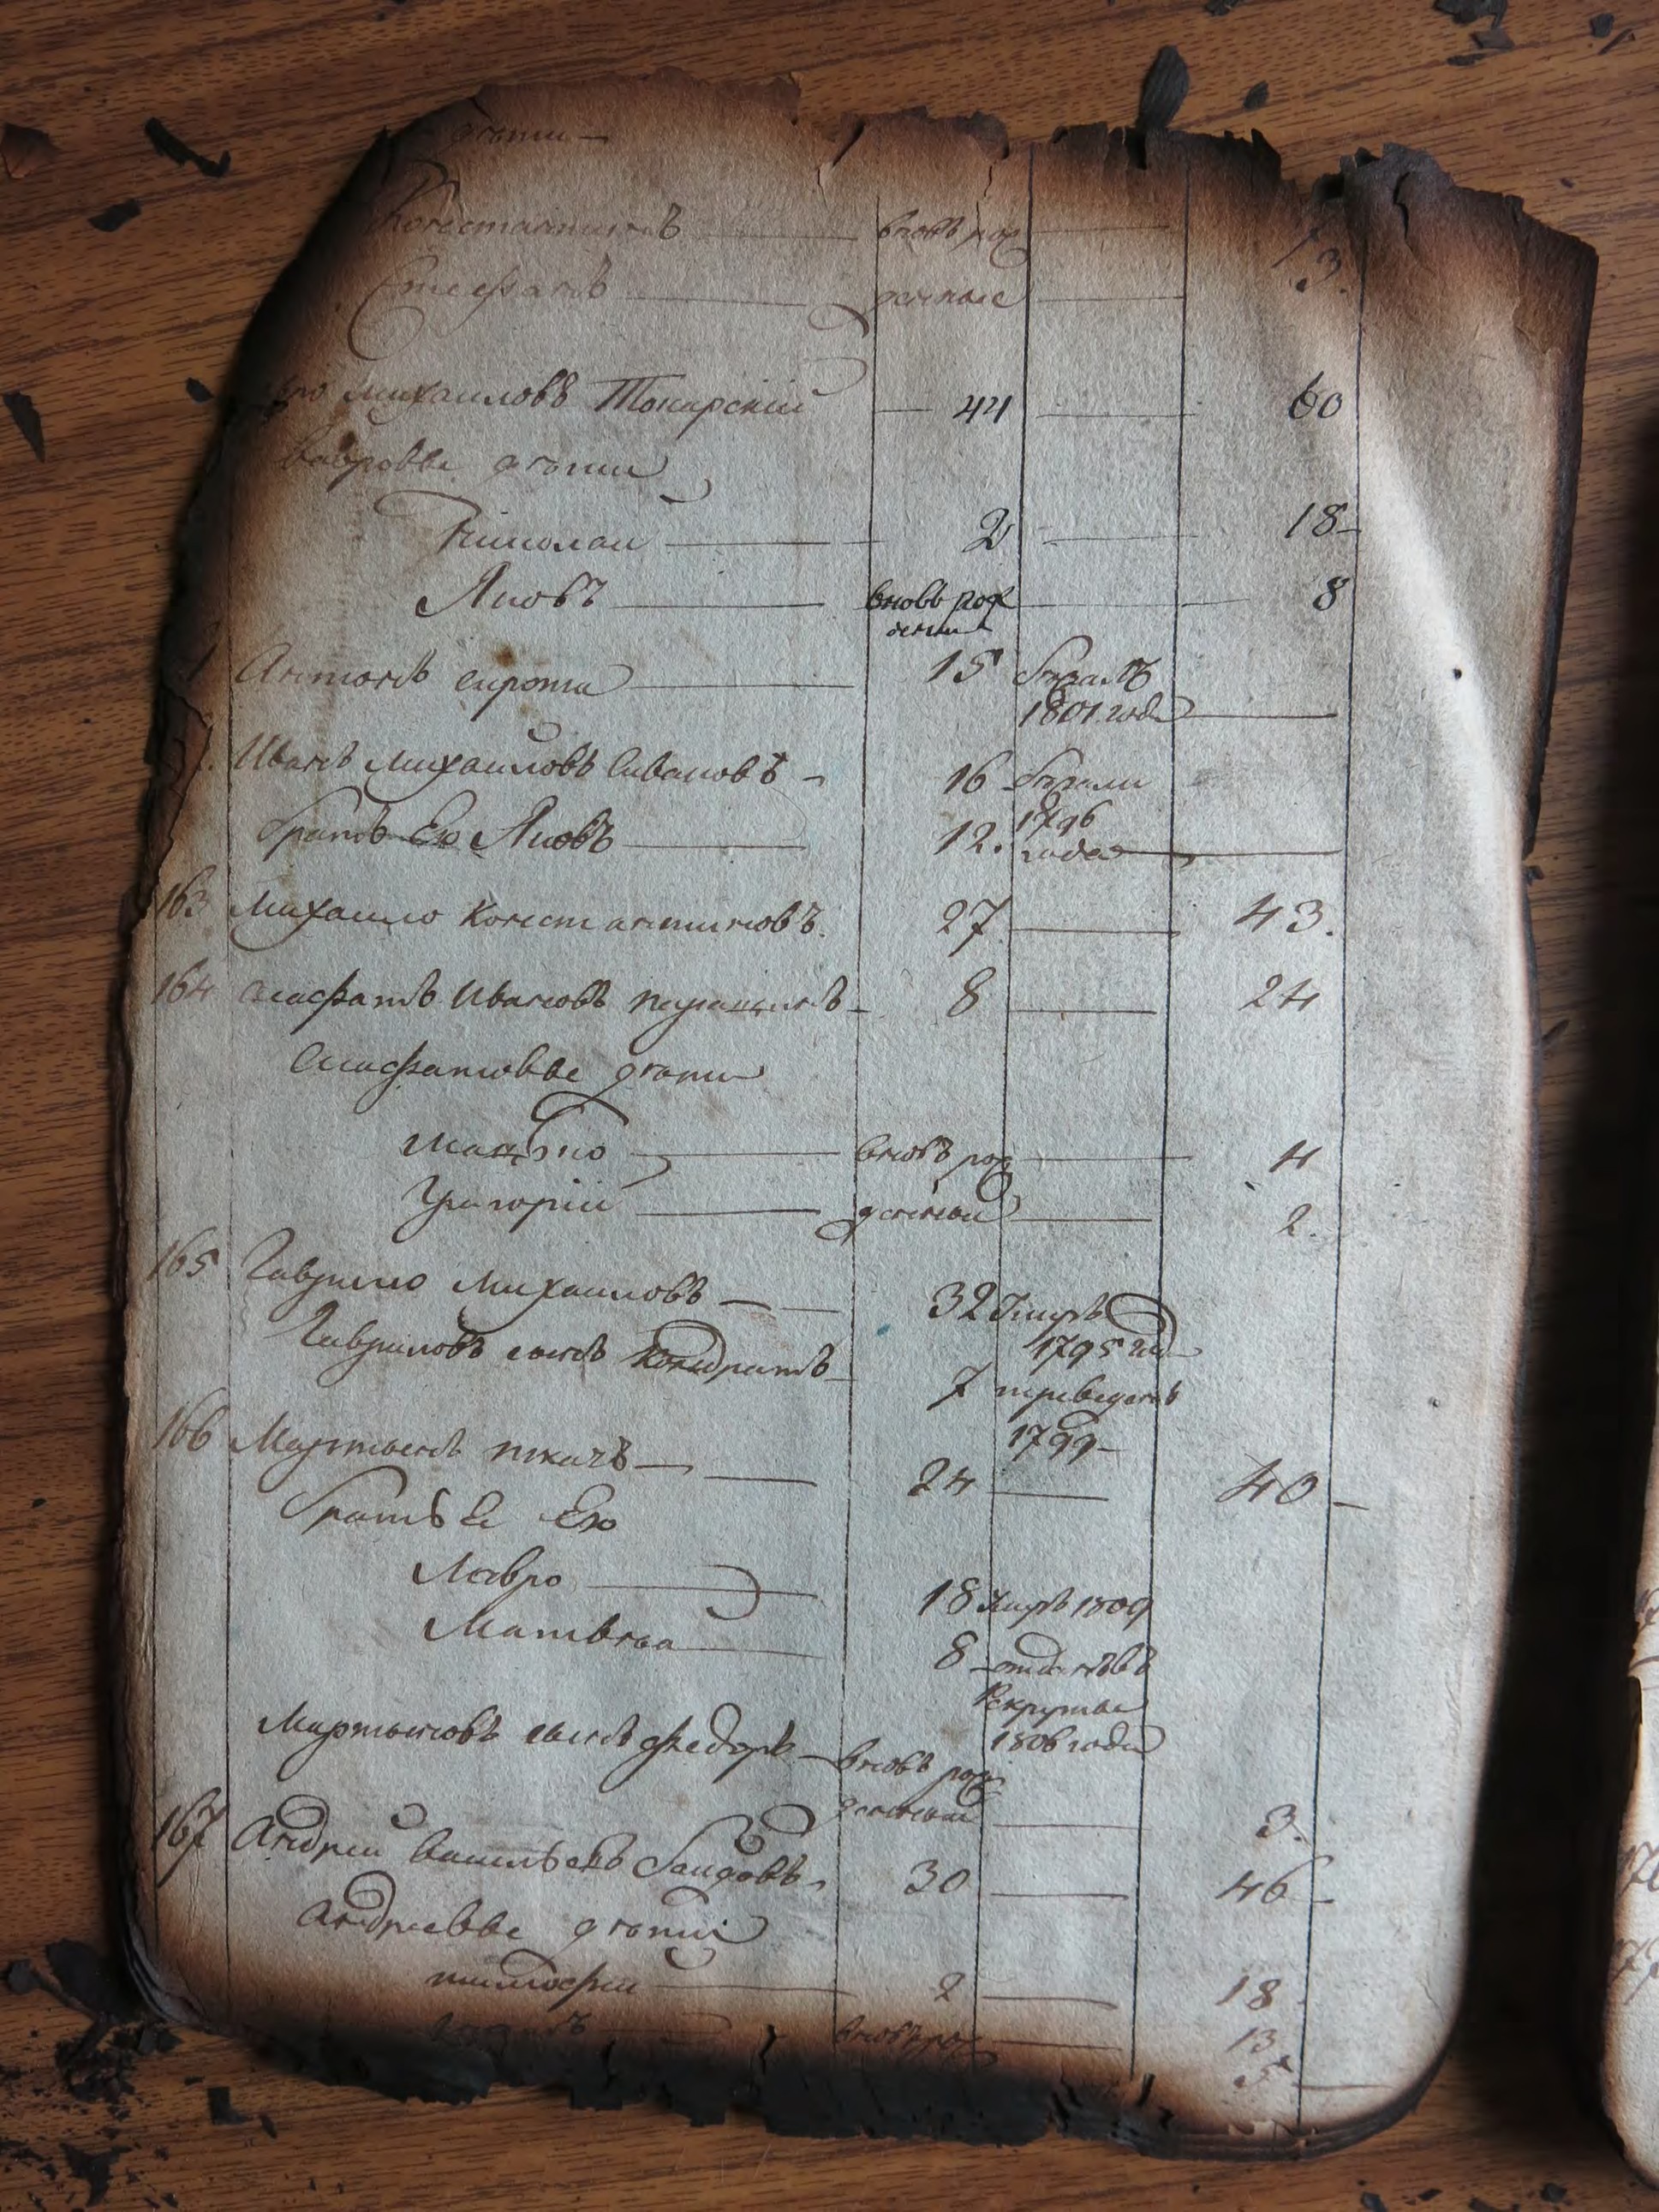 дѣти —
Константинъ — вновь рож
Стефанъ — денные — 3.
Михаиловъ Токарскій — 44 — 60
Лавровы дѣти
Николай — 2 — 18 —
Яковъ — вновь рож — 8
денны
Антонъ сирота — 15 бѣжалъ
1801 года —
Иванъ Михайловъ — 16 бѣжали
братъ Ево Яковъ — 12. 1796
года —
163 Михайло Константиновъ. 27 — 43.
164 Асафатъ Ивановъ — 8 — 24
Асафатовы дѣти
вновь рож — 4
Григорій — денныи — 2.
165 Гаврило Михаиловъ — 32 Умръ
1795 год
Гавриловъ сынъ Кондратъ — 7 переведенъ
1799 —
166 Мартынъ ткачъ — 24 — 40 —
братья Ево
Лавро — 18 Умръ 1809
Матвѣй — 8 — отданъ въ
Рекруты
1806 года
Мартыновъ сынъ Федоръ — вновь рож
денныи — 3.
167 Андрей Васильевъ — 30 — 46 —
Андреевы дѣти
тимофеи — 2 — 18
вновь рож — 13
5 —